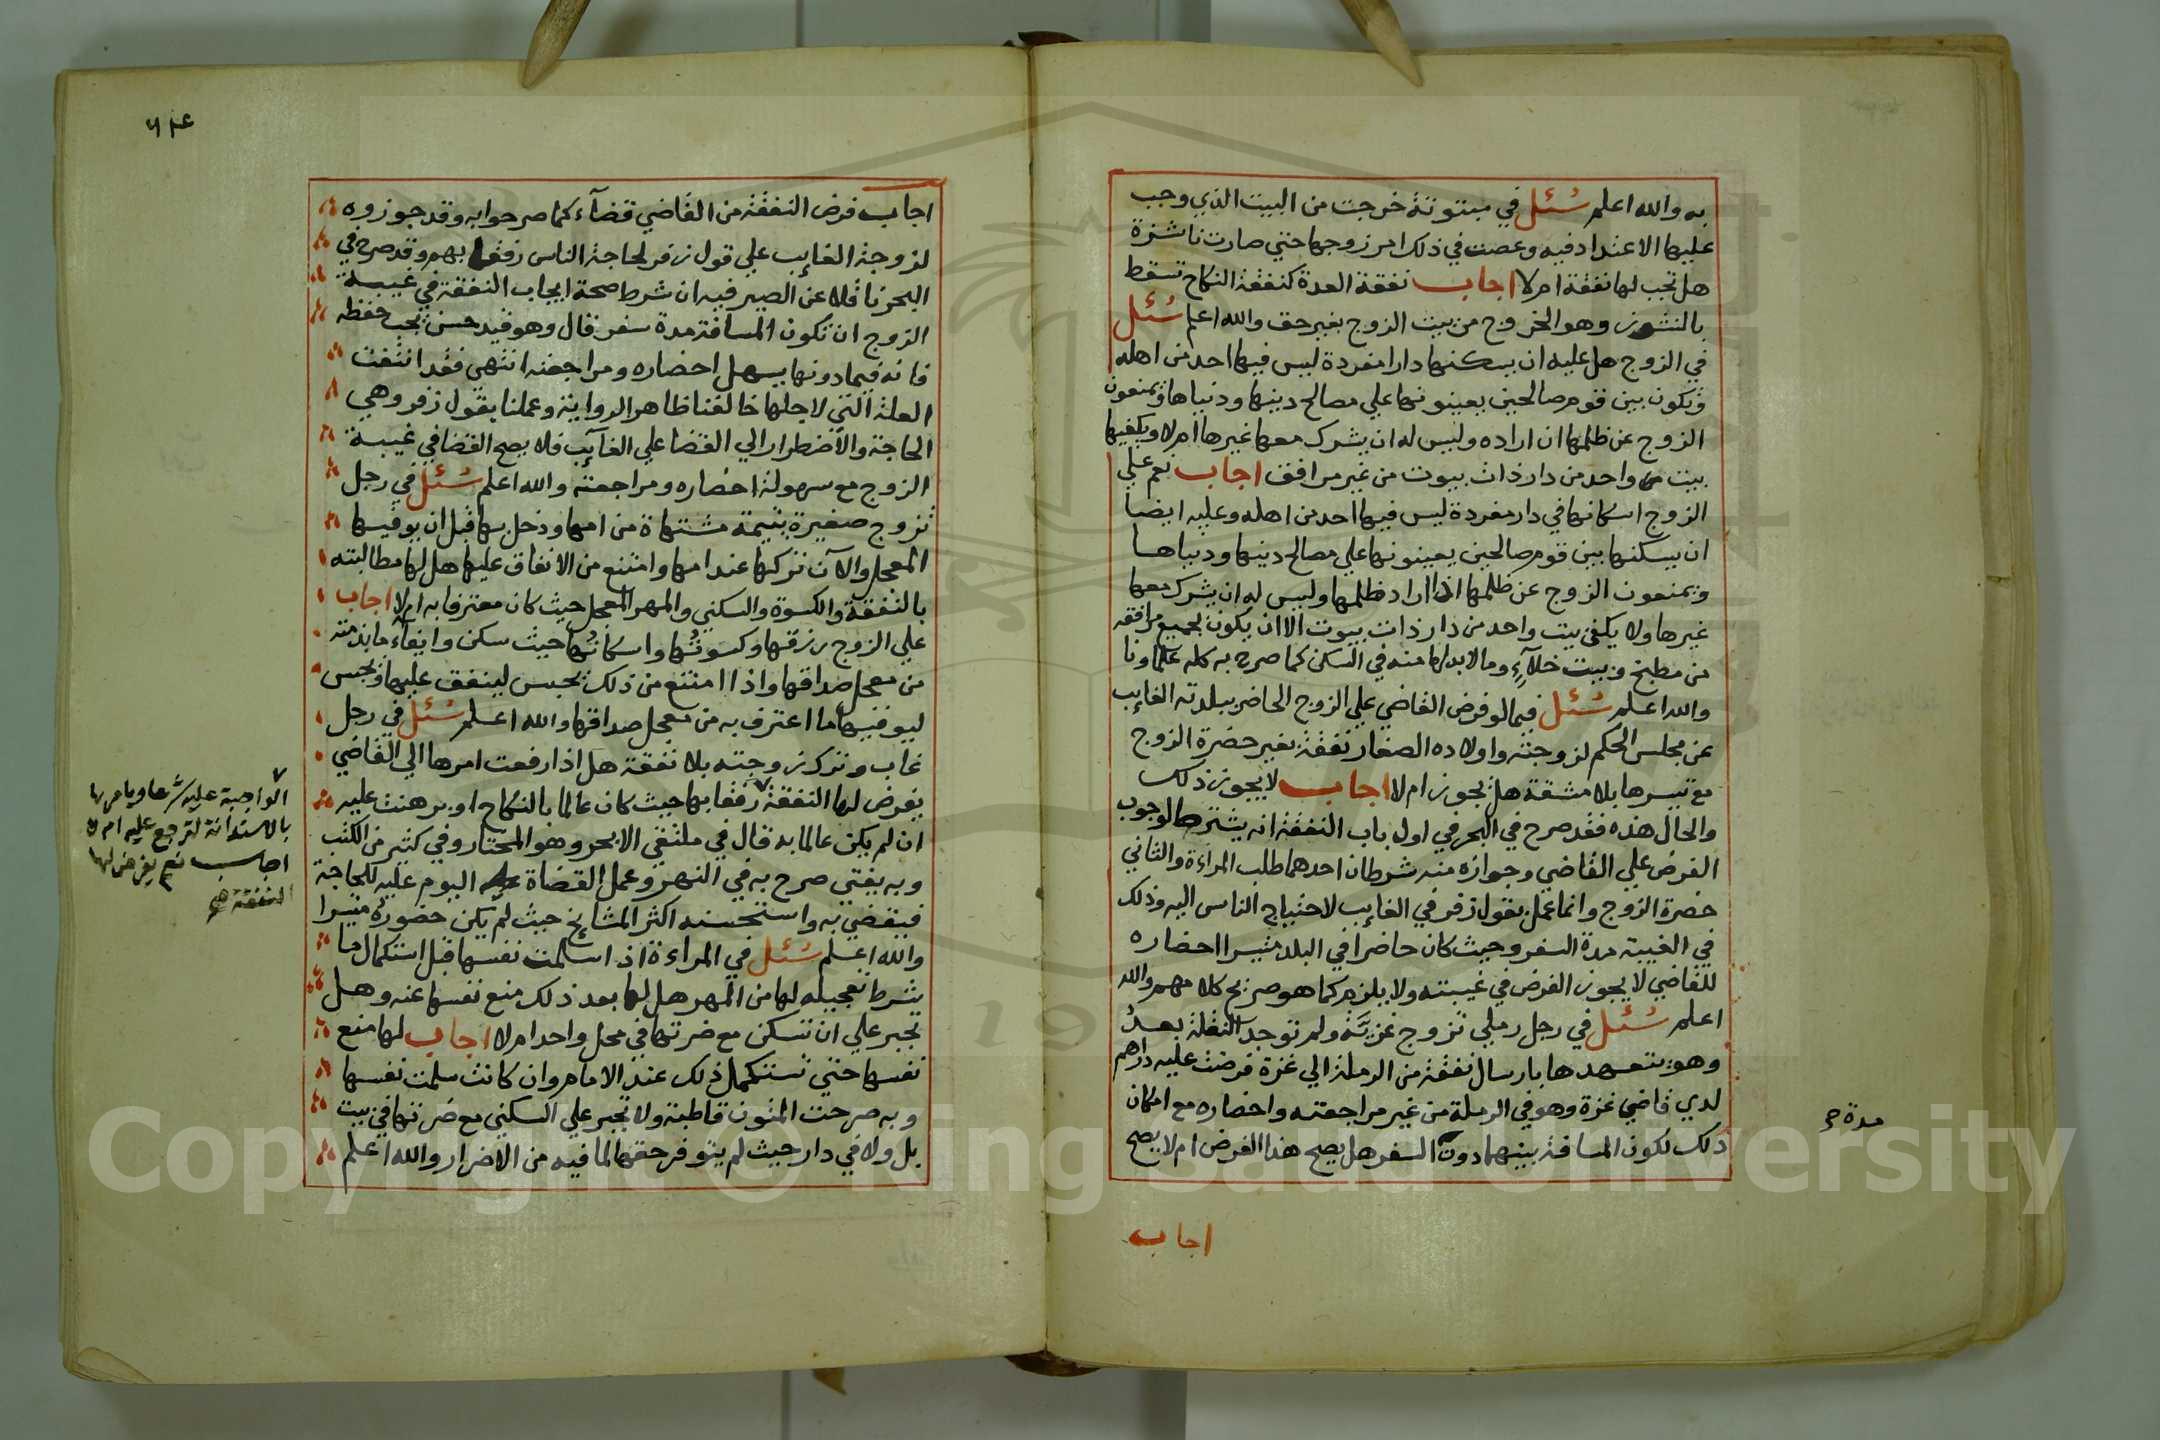 به والله اعلم سئل في مبتوتة خرجت من البيت الذي وجب
عليها الاعتداد فيه وعصت في ذلك امر زوجها حتي صارت ناشزة
هل تجب لها نفقة ام لا اجاب نفقة العدة كنفقة النكاح تسقط
بالنشوز وهو الخروج من بيت الزوج بغير حق والله اعلم سئل
في الزوج هل عليه ان يسكنها دارا مفردة ليس فيها احد من اهله
وتكون بين قوم صالحين يعينونها علي مصالح دينها ودنياها ويمنعون
الزوج عن ظلمها ان اراده وليس له ان يشرك معها غيرها ام لا ويكفيها
بيت واحد من دار ذات بيوت من غير مرافق اجاب نعم علي
الزوج اسكانها في دار مفردة ليس فيها احد من اهله وعليه ايضا
ان يسكنها بين قوم صالحين يعينونها علي مصالح دينها ودنياها
ويمنعون الزوج عن ظلمها اذا اراد ظلمها وليس له ان يشرك معها
غيرها ولا يكفي بيت واحد من دار ذات بيوت الا ان يكون بجميع مرافقه
من مطبخ وبيت خلاء وما لا بد لها منه في السكن كما صرح به كله علماونا
والله اعلم سئل فيما لو فرض القاضي علي الزوج الحاضر ببلدته الغايب
عن مجلس الحكم لزوجته واولاده الصغار نفقة بغير حضرة الزوج
مع تيسرها بلا مشقة هل يجوز ام لا اجاب لا يجوز ذلك
والحال هذه فقد صرح في البحر في اول باب النفقة انه يشترط لوجوب
الفرض علي القاضي وجوازه منه شرطان احدهما طلب المراءة والثاني
حضرة الزوج وانما عمل بقول زفر في الغايب لاحتياج الناس اليه وذلك
في الغيبة مدة السفر وحيث كان حاضرا في البلد متيسرا احضاره
للقاضي لا يجوز الفرض في غيبته ولا يلزم كما هو صريح كلامهم والله
اعلم سئل في رجل رملي تزوج غزية ولم توجد النقلة بعد
وهو يتعهدها بارسال نفقة من الرملة الي غزة فرضت عليه دراهم
لدي قاضي غزة وهو في الرملة من غير مراجعته واحضاره مع امكان
ذلك لكون المسافة بينهما دون السفر هل يصح هذا الفرض ام لا يصح
مدة صح
اجاب
اجاب فرض النفقة من القاضي قضآء كما صرحوا به وقد جوزوه
لزوجة الغايب علي قول زفر لحاجة الناس رفقا بهم وقد صرح في
البحر ناقلا عن الصيرفيه ان شرط صحة ايجاب النفقة في غيبة
الزوج ان تكون المسافة مدة سفر قال وهو قيد حسن يجب حفظه
فانه فيما دونها يسهل احضاره ومراجعته انتهي فقد انتفت
العلة التي لاجلها خالفنا ظاهر الرواية وعملنا بقول زفر وهي
الحاجة والاضطرار الي القضا علي الغآيب فلا يصح القضا في غيبة
الزوج مع سهولة احضاره ومراجعته والله اعلم سئل في رجل
تزوج صغيرة يتيمة مشتهاة من امها ودخل بها قبل ان يوفيها
المعجل والآن تركها عند امها وامتنع من الانفاق عليها هل لها مطالبته
بالنفقة والكسوة والسكني والمهر المعجل حيث كان معترفا به ام لا اجاب
علي الزوج رزقها وكسوتها واسكانها حيث سكن وايفاء ما بذمته
من معجل صداقها واذا امتنع من ذلك يحبس لينفق عليها ويحبس
ليوفيها ما اعترف به من معجل صداقها والله اعلم سئل في رجل
غاب وترك زوجته بلا نفقة هل اذا رفعت امرها الي القاضي
يفرض لها النفقة رفقا بها حيث كان عالما بالنكاح او برهنت عليه
ان لم يكن عالما به قال في ملتقي الابحر وهو المختار وفي كثير من الكتب
وبه يفتي صرح به في النهر وعمل القضاة اليوم عليه للحاجة
فيقضي به واستحسنه اكثر المشايخ حيث لم يكن حضوره متيسرا
والله اعلم سئل في المراءة اذا سلمت نفسها قبل استكمال ما
شرط تعجيله لها من المهر هل لها بعد ذلك منع نفسها عنه وهل
تجبر علي ان تسكن مع ضرتها في محل واحد ام لا اجاب لها منع
نفسها حتي تستكمل ذلك عند الامام وان كانت سلمت نفسها
وبه صرحت المتون قاطبة ولا تجبر علي السكني مع ضرتها في بيت
بل ولا في دار حيث لم يتوفر حقها لما فيه من الاضرار والله اعلم
الواجبة عليه شرعا ويامرها
بالاستدانة لترجع عليه ام لا
اجاب نعم يفرض لها
النفقة صح
Copyright © King Saud University